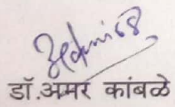 डॉ.अमर कांबळे